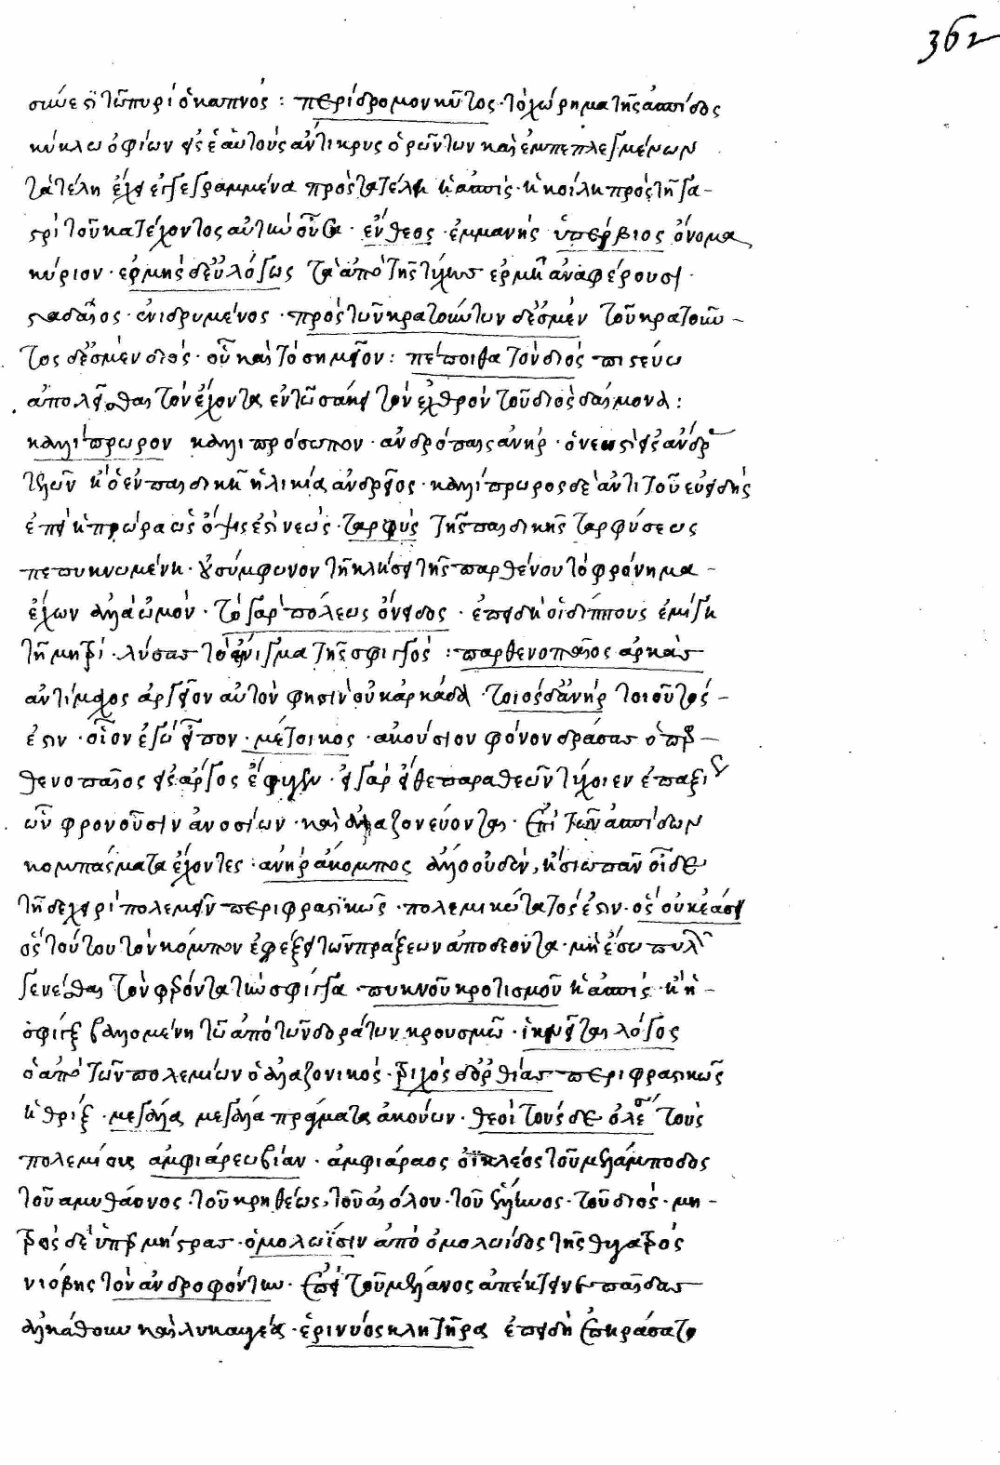 362
σύνεστι τῶ πυρὶ ὁ καπνός : περίδρομον κῦτος · τὸ χώρημα τῆς ἀσπίδος
κύκλω ὀφίων εἰς ἑαὐτοὺς ἀντικρυς ὁρώντων καὶ ἐμπεπλεγμένων
τὰ τέλη ἔχει ἐγγεγραμμένα πρὸς τὰ τέλη ἡ ἀσπὶς · ἡ κοίλη πρὸς τῆ γα-
στρὶ τοῦ κατέχοντος αὐτὴν οὖσα · ἔνθεος · ἐμμανὴς ὑπέρβιος ὄνομα
κύριον · ἑρμῆς δεὐλόγως τὰ ἀπὸ τῆς τύχης ἑρμῆ ἀναφέρουσι ·
σταδαῖος · ἐνιδρυμένος · πρὸς τῶν κρατούντων δέσμεν τοῦ κρατοῦν-
τος δέσμεν διός · οὗ καὶ τὸ σημεῖον : πέποιθα τὸν διὸς πιστεύω
ἀπολεῖσθαι τὸν ἔχοντα ἐν τῶ σάκει τὸν ἐχθρὸν τοῦ διὸς δαίμονα :
καλλίπρωρον καλλιπρόσωπον · ἀνδρόπαις ἀνήρ · ὁ νεωστὶ εἰς ἄνδρ
τελῶν ἢ ὁ ἐν παιδικῆ ἡλικία ἀνδρεῖος · καλλίπρωρος δὲ ἀντὶ τοῦ εὐειδὴς
ἐπεὶ ἡ πρώρα ὡς ὄψις ἐστὶ νεώς · ταρφὺς τῆς παιδικῆς ταρφύσεως
πεπυκνωμένη · οὐ σύμφωνον τῆ κλήσει τῆς παρθένου τὸ φρόνημα -
ἔχων ἀλλὰ ὠμόν · τὸ γὰρ πόλεως ὄνειδος · ἐπειδὴ οἰδίπους ἐμίγη
τῆ μητρὶ · λύσας τὸ αἴνιγμα τῆς σφιγγός : παρθενοπαῖος ἀρκὰς
ἀντίμαχος ἀργεῖον αὐτὸν φησὶν οὐκ ἀρκάδα · τοιόσδ' ἀνὴρ τοιοῦτός -
ἐστιν · οἷον ἐγὼ εἶπον · μέτοικος · ἀκούσιον φόνον δράσας ὁ παρ-
θενοπαῖος εἰς ἄργος ἔφυγεν · εἰ γὰρ εἴθε παρὰ θεῶν τύχοιεν ἐπαξί
ὧν φρονοῦσιν ἀνοσίων · καὶ ἀλαζονεύονται · ἐπὶ τῶν ἀσπίδων
κομπάσματα ἔχοντες : ἀνὴρ ἄκομπος ἀλλὸ οὐδὲν, ἢ σιωπᾶν οἶδε
τῆ δὲ χειρὶ πολεμεῖν περιφραστικῶς · πολεμικώτατός ἐστιν · ὃς οὐκ ἐάσει
ὃς τούτου τὸν κόμπον ἐφέξει τῶν πράξεων ἀποδέοντα · μὴ ἔσω πυλῶν
γενέσθαι τὸν φέροντα τὴν σφίγγα · πυκνοῦ κροτισμοῦ ἡ ἀσπὶς · ἢ ἡ -
σφὶγξ βαλλομένη τῶ ἀπὸ τῶν δοράτων κρουσμῶ · ἱκνεῖται λόγος
ὁ ἀπὸ τῶν πολεμίων ὁ ἀλαζονικός · τριχὸς δ'ὀρθίας περιφραστικῶς
ἡ θρὶξ · μεγάλα, μεγάλα πράγματα ἀκούων · θεοὶ τούσδε ὀλέσ τοὺς
πολεμίους ἀμφιάρεω βίαν · ἀμφιάραος ὀϊκλέος τοῦ μελάμποδος
τοῦ ἀμυθάονος · τοῦ κρηθέως, τοῦ αἰόλου · τοῦ ἕλληνος · τοῦ διός · μη-
τρὸς δὲ ὑπερμήστρας · ὁμολωΐσιν ἀπὸ ὁμολωΐδος τῆς θυγατρὸς
νιόβης τὸν ἀνδροφόντην · ἐπεὶ τοῦ μέλανος ἀπέκτεινε παῖδας
ἀλκάθουν καὶ λυκωπέα · ἐρινύος κλητῆρα ἐπειδὴ ἐπηράσατο